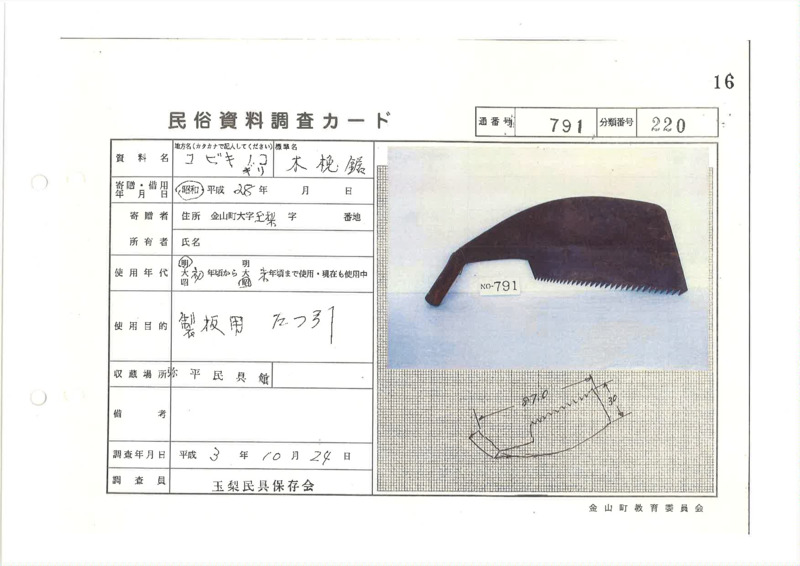 16
民俗資料調査カード
通番号 791 分類番号 220
資料名 地方名(カタカナで記入してください) コビキノコギリ 標準名 木挽鋸
寄贈・借用年月日 昭和 平成 28年 月 日
寄贈者 住所 金山町大字玉梨字 番地
所有者 氏名
使用年代 明大昭 初年頃から 明大昭 末年頃まで使用・現在も使用中
使用目的 製板用 たつ引
収蔵場所 弥平民具館
備考
調査年月日 平成 3年 10月 24日
調査員 玉梨民具保存会
NO-791
87.0
30
金山町教育委員会